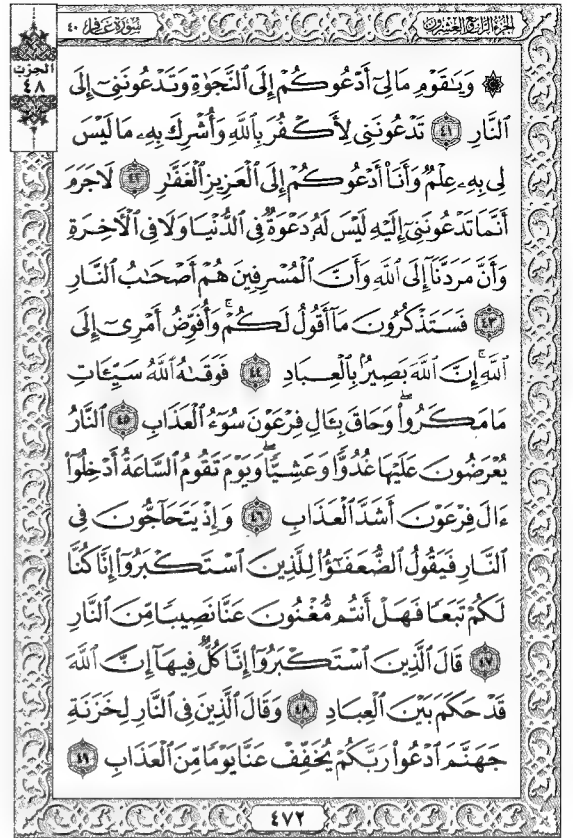 الجزء الرابع والعشرون
سورة غافر ٤٠
الحزب
٤٨
۞ وَيَٰقَوْمِ مَا لِىٓ أَدْعُوكُمْ إِلَى ٱلنَّجَوٰةِ وَتَدْعُونَنِىٓ إِلَى
ٱلنَّارِ ٤١ تَدْعُونَنِى لِأَكْفُرَ بِٱللَّهِ وَأُشْرِكَ بِهِۦ مَا لَيْسَ
لِى بِهِۦ عِلْمٌ وَأَنَا۠ أَدْعُوكُمْ إِلَى ٱلْعَزِيزِ ٱلْغَفَّٰرِ ٤٢ لَا جَرَمَ
أَنَّمَا تَدْعُونَنِىٓ إِلَيْهِ لَيْسَ لَهُۥ دَعْوَةٌ فِى ٱلدُّنْيَا وَلَا فِى ٱلْأَخِرَةِ
وَأَنَّ مَرَدَّنَآ إِلَى ٱللَّهِ وَأَنَّ ٱلْمُسْرِفِينَ هُمْ أَصْحَٰبُ ٱلنَّارِ
٤٣ فَسَتَذْكُرُونَ مَآ أَقُولُ لَكُمْ ۚ وَأُفَوِّضُ أَمْرِىٓ إِلَى
ٱللَّهِ ۚ إِنَّ ٱللَّهَ بَصِيرٌۢ بِٱلْعِبَادِ ٤٤ فَوَقَىٰهُ ٱللَّهُ سَيِّـَٔاتِ
مَا مَكَرُوا۟ ۖ وَحَاقَ بِـَٔالِ فِرْعَوْنَ سُوٓءُ ٱلْعَذَابِ ٤٥ ٱلنَّارُ
يُعْرَضُونَ عَلَيْهَا غُدُوًّا وَعَشِيًّا ۖ وَيَوْمَ تَقُومُ ٱلسَّاعَةُ أَدْخِلُوٓا۟
ءَالَ فِرْعَوْنَ أَشَدَّ ٱلْعَذَابِ ٤٦ وَإِذْ يَتَحَآجُّونَ فِى
ٱلنَّارِ فَيَقُولُ ٱلضُّعَفَٰٓؤُا۟ لِلَّذِينَ ٱسْتَكْبَرُوٓا۟ إِنَّا كُنَّا
لَكُمْ تَبَعًا فَهَلْ أَنتُم مُّغْنُونَ عَنَّا نَصِيبًا مِّنَ ٱلنَّارِ
٤٧ قَالَ ٱلَّذِينَ ٱسْتَكْبَرُوٓا۟ إِنَّا كُلٌّ فِيهَآ إِنَّ ٱللَّهَ
قَدْ حَكَمَ بَيْنَ ٱلْعِبَادِ ٤٨ وَقَالَ ٱلَّذِينَ فِى ٱلنَّارِ لِخَزَنَةِ
جَهَنَّمَ ٱدْعُوا۟ رَبَّكُمْ يُخَفِّفْ عَنَّا يَوْمًا مِّنَ ٱلْعَذَابِ ٤٩
٤٧٢